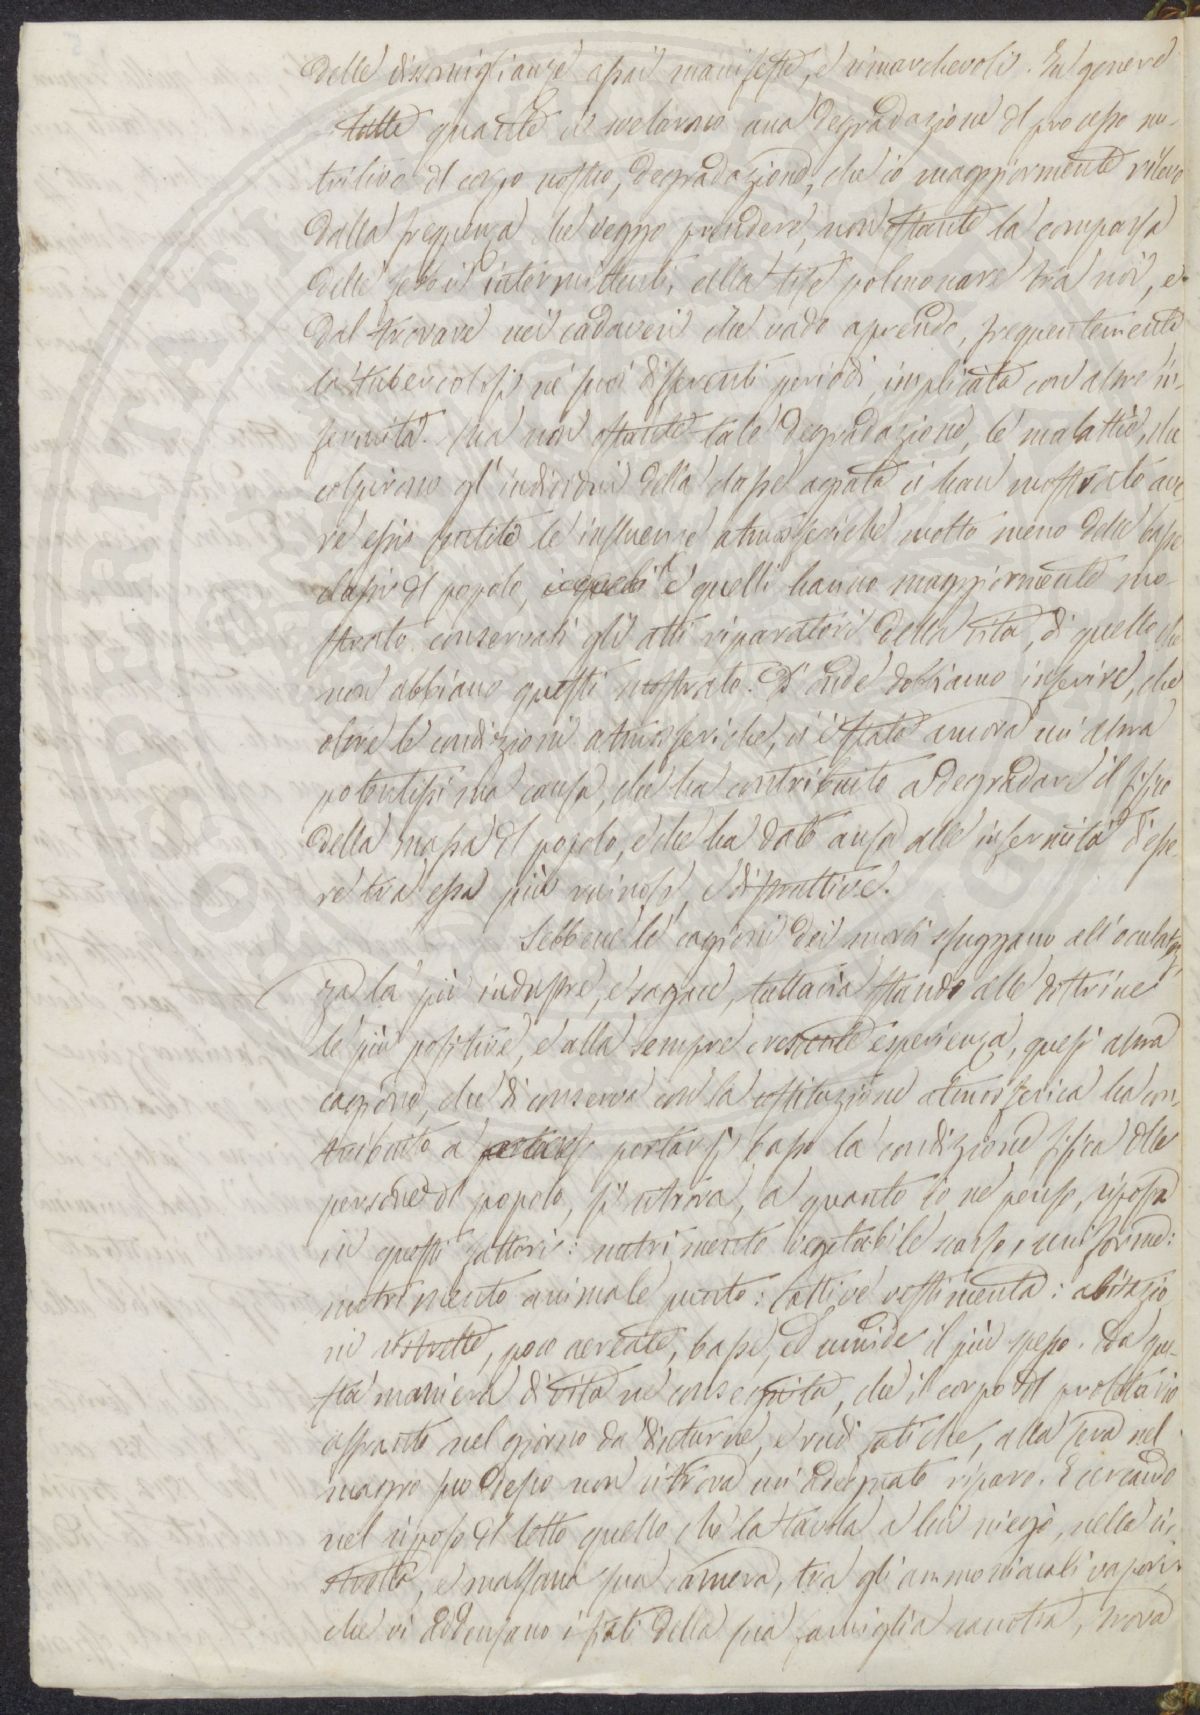 delle dissomiglianze assai manifeste, e rimarchevoli. In genere
tutte quante ci svelarono una degradazione del processo nu-
tritivo del corpo nostro, degradazione, che io maggiormente rilevo
dalla frequenza che veggo prendere, non ostante la comparsa
delle febbri intermittenti, della tise polmonare tra noi, e
dal trovare nei cadaveri che vado aprendo, frequentemente
la tubercolosi ne' suoi differenti periodi, implicata con altre in-
fermità. Ma non ostante tale degradazione, le malattie, che
colpirono gl'individui della classe agiata ci han mostrato ave
re essi sentite le influenze atmosferiche molto meno delle basse
classi del popolo, e quelli hanno maggiormente mo-
strato conservati gli atti riparatori della vita, di quello che
non abbiano questi mostrato. D'onde dobbiamo inferire, che
oltre le condizioni atmosferiche, vi è stata ancora un'altra
potentissima causa, che ha contribuito a degradare il fisico
della massa del popolo, e che ha dato ansa alle infermità d'esse
re tra essa più ruinose, e distruttive.
Sebbene le cagioni dei morbi sfuggano all'oculatez
za la più industre, e sagace, tuttavia stando alle dottrine
le più positive, e alla sempre crescente esperienza, quest'altra
cagione, che di conserva con la costituzione atmosferica ha con-
tribuito a portarsi basso la condizione fisica delle
persone del popolo, si ritrova, a quanto io ne penso, riposta
in questi fattori: nutrimento vegetabile scarso, uniforme:
nutrimento animale punto: cattive vestimenta: abitazio
ni ristrette, poco aereate, basse, ed umide il più spesso. Da que-
sta maniera di vita ne conseguita, che il corpo del proletario
affranto nel giorno da diuturne, e rudi fatiche, alla sera nel
magro suo desco non ritrova un'adeguato riparo. E cercando
nel riposo del letto quello che la tavola a lui niegò, nella ri-
stretta, e malsana sua camera, tra gli ammoniacali vapori
che vi addensano i fiati della sua famiglia raccolta, trova